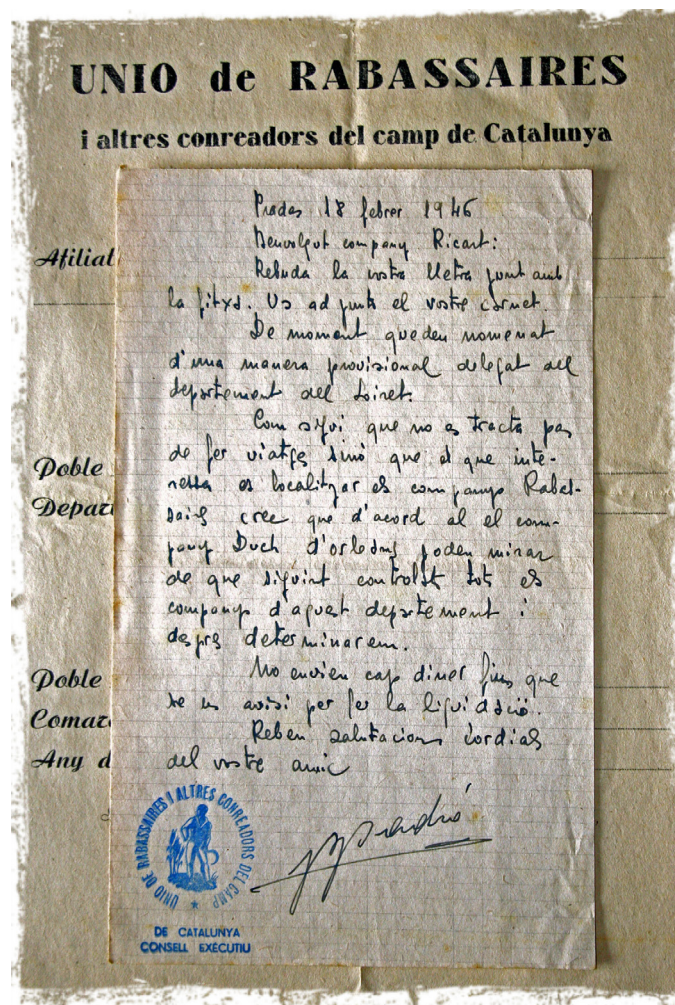 UNIO de RABASSAIRES
i altres conreadors del camp de Catalunya
Prades 18 febrer 1946
Benvolgut company Ricart:
Afilial
Rebuda la vostra lletra junt amb
la fitxa. Us adjunto el vostre carnet.
De moment quedeu nomenat
d'una manera provisional delegat del
departement del Loiret.
Com sigui que no es tracta pas
de fer viatges sinó que el que inte-
Poble
ressa es localitzar els companys Rabas-
Depart
saires crec que d'acord al el com-
pany Duch d'Orleans podeu mirar
de que siguint controlats tots els
companys d'aquest departement i
despres determinarem.
No envieu cap diner fins que
Poble
se us avisi per fer la liquidació.
Comar
Rebeu salutacions cordials
Any d
del vostre amic
UNIO DE RABASSAIRES I ALTRES CONREADORS DEL CAMP
DE CATALUNYA
CONSELL EXECUTIU